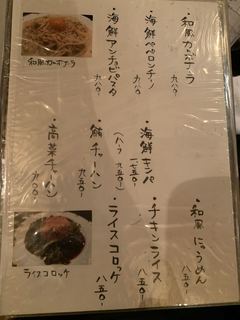 和風カルボナーラ
九八〇-
海鮮ペペロンチーノ
九八〇-
海鮮アンチョビパスタ
九八〇-
和風カルボナーラ
和風 にゅうめん
八五〇-
チキンライス
八五〇-
ライスコロッケ
八五〇-
海鮮キンパ
一七五〇-
(ハーフ 九五〇-)
鮪チャーハン
九五〇-
高菜チャーハン
九〇〇-
ライスコロッケ